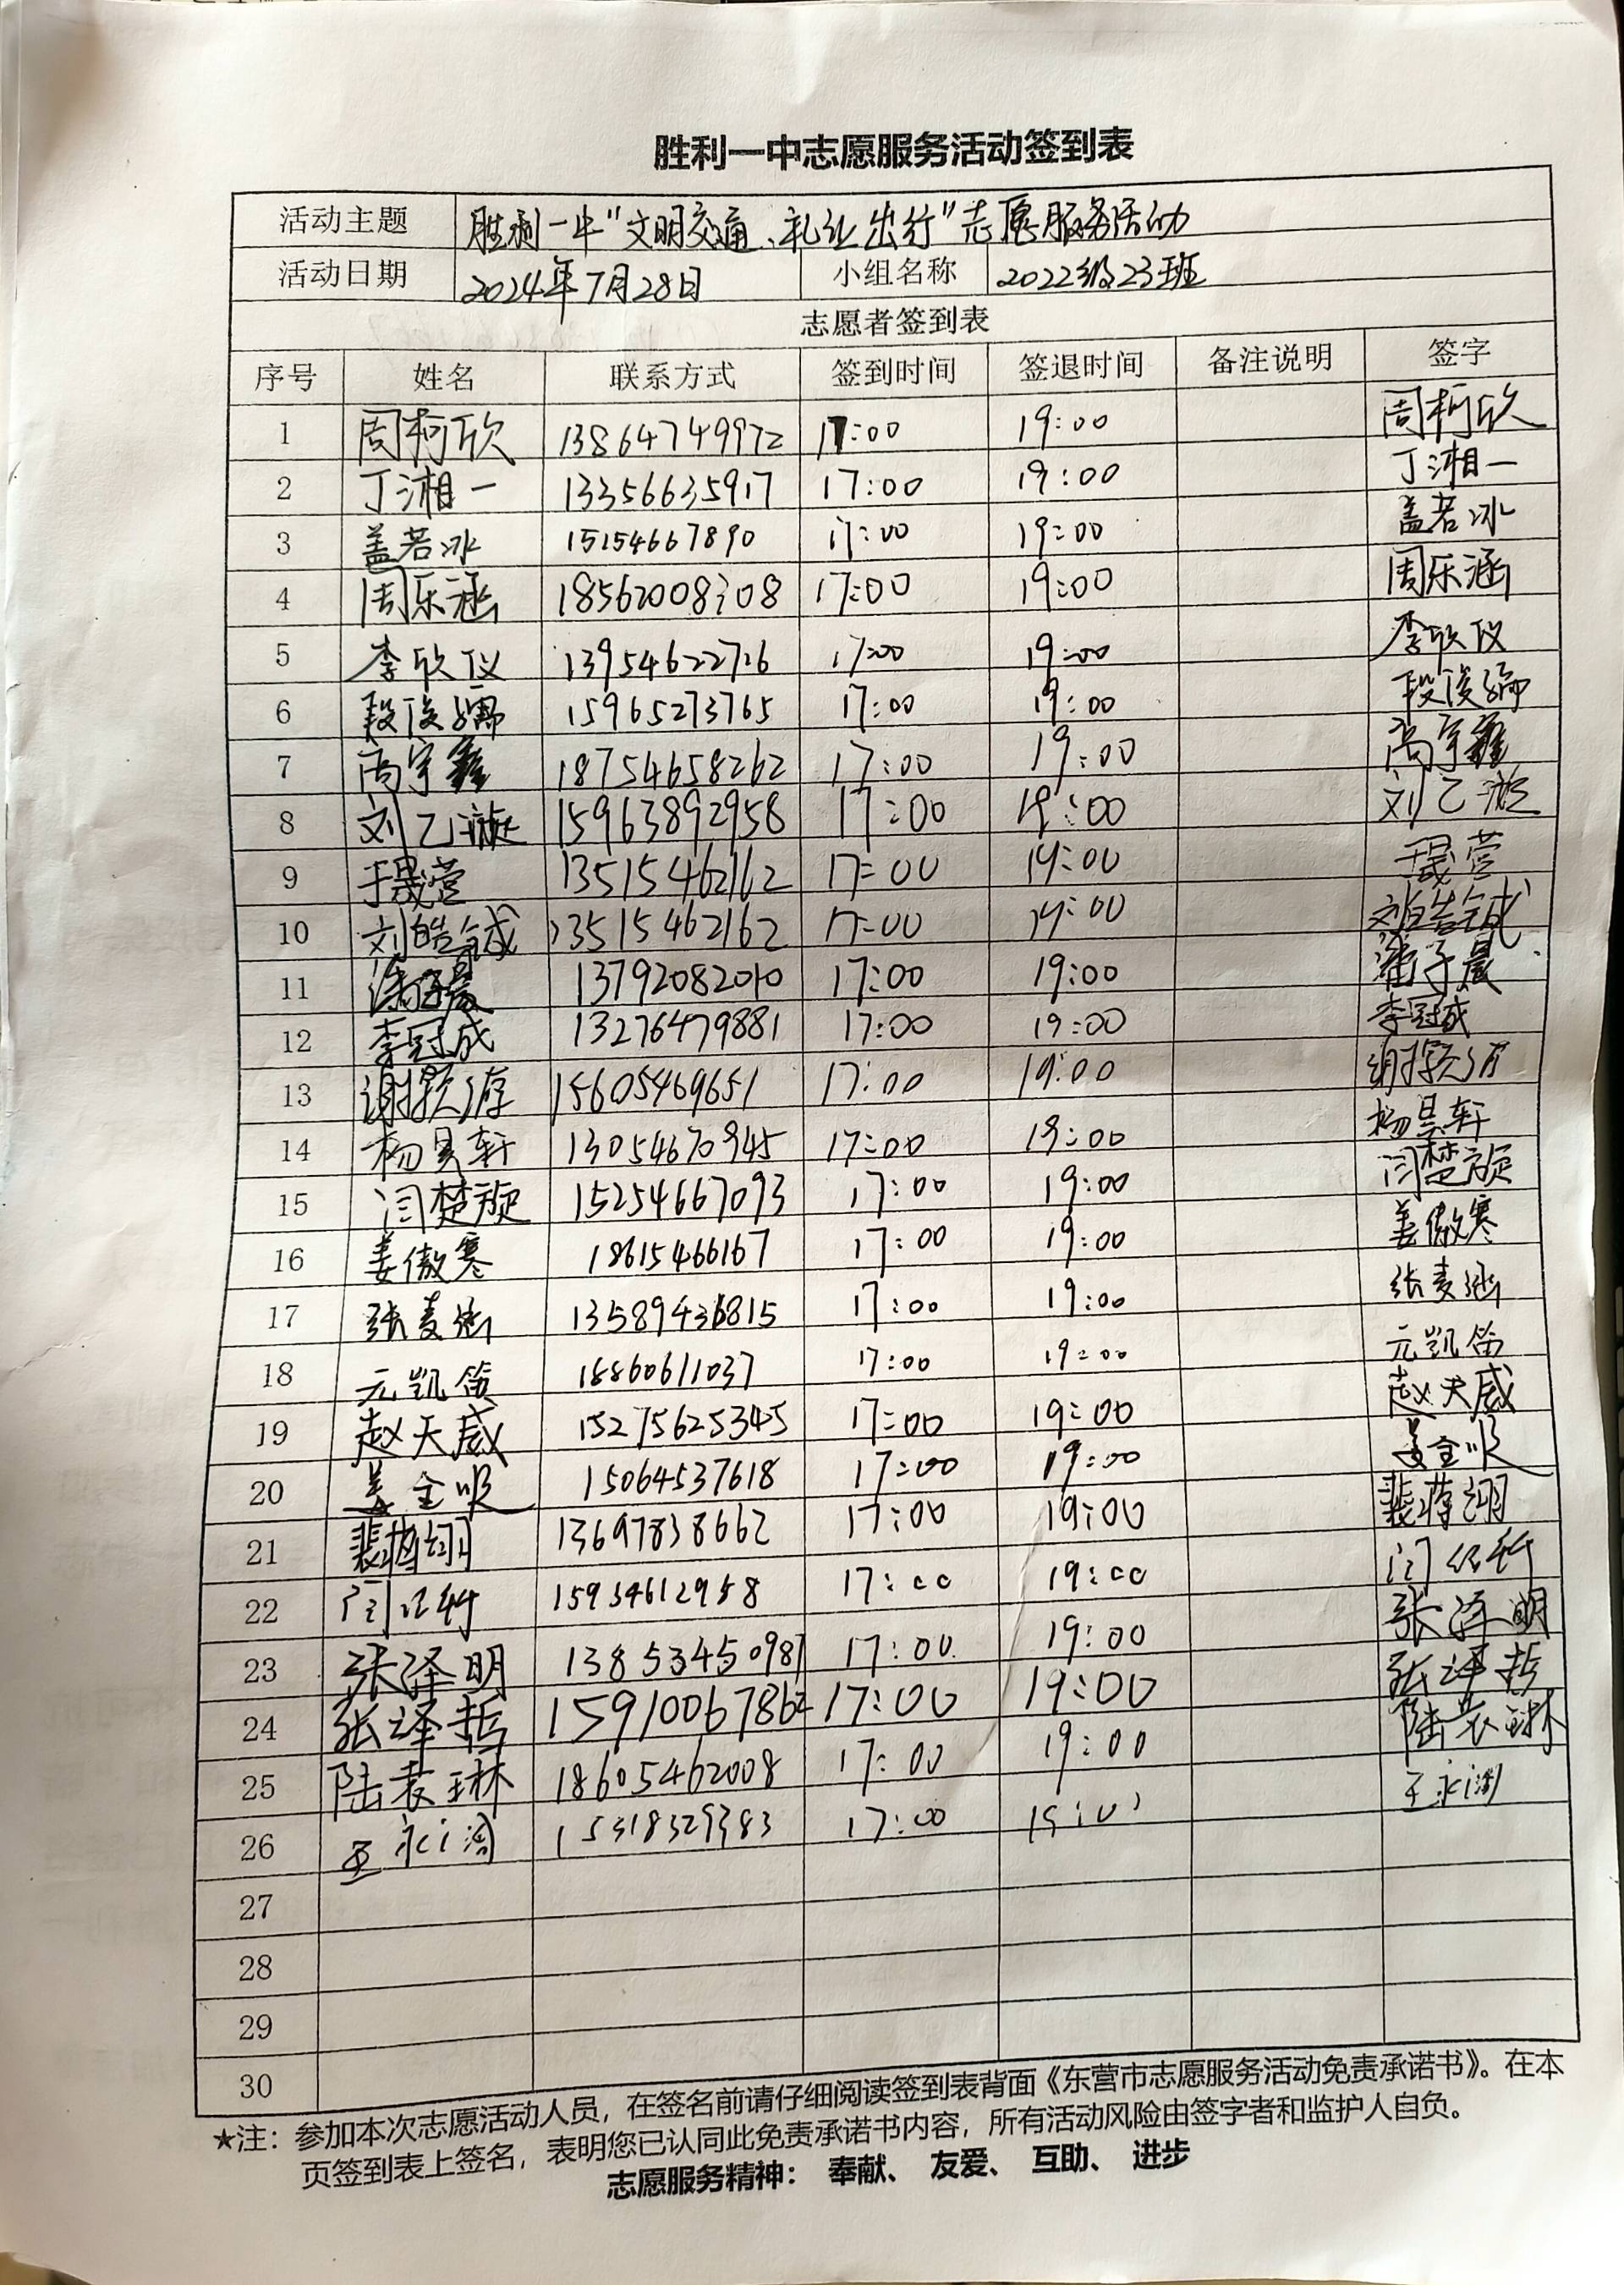 胜利一中志愿服务活动签到表
活动主题 胜利一中"文明交通、礼让出行"志愿服务活动
活动日期 2024年7月28日 小组名称 2022级23班
志愿者签到表
序号 姓名 联系方式 签到时间 签退时间 备注说明 签字
1 周柯欣 13864749972 17:00 19:00 周柯欣
2 丁湘一 13356635917 17:00 19:00 丁湘一
3 盖若冰 15154667890 17:00 19:00 盖若冰
4 周乐涵 18562008308 17:00 19:00 周乐涵
5 李欣仪 13954622716 17:00 19:00 李欣仪
6 段俊孺 15965273765 17:00 19:00 段俊孺
7 高宇鑫 18754658262 17:00 19:00 高宇鑫
8 刘乙漩 15963892958 17:00 19:00 刘乙漩
9 于晟萱 13515462162 17:00 19:00 于晟萱
10 刘皓铖 13515462162 17:00 19:00 刘皓铖
11 潘子晨 13792082010 17:00 19:00 潘子晨
12 李冠成 13276479881 17:00 19:00 李冠成
13 15605469651 17:00 19:00
14 杨昊轩 13054670945 17:00 19:00 杨昊轩
15 闫楚旋 15254667093 17:00 19:00 闫楚旋
16 姜傲寒 18615466167 17:00 19:00 姜傲寒
17 张麦涵 13589436815 17:00 19:00 张麦涵
18 元凯笛 18860611037 17:00 19:00 元凯笛
19 赵天威 15275625345 17:00 19:00 赵天威
20 姜全顺 15064537618 17:00 19:00 姜全顺
21 13697838662 17:00 19:00
22 15954612958 17:00 19:00
23 张泽明 13853450987 17:00 19:00 张泽明
24 张泽哲 15910067862 17:00 19:00 张泽哲
25 陆裳琳 18605462008 17:00 19:00 陆裳琳
26 15318329383 17:00
27
28
29
30
★注：参加本次志愿活动人员，在签名前请仔细阅读签到表背面《东营市志愿服务活动免责承诺书》。在本
页签到表上签名，表明您已认同此免责承诺书内容，所有活动风险由签字者和监护人自负。
志愿服务精神： 奉献、 友爱、 互助、 进步